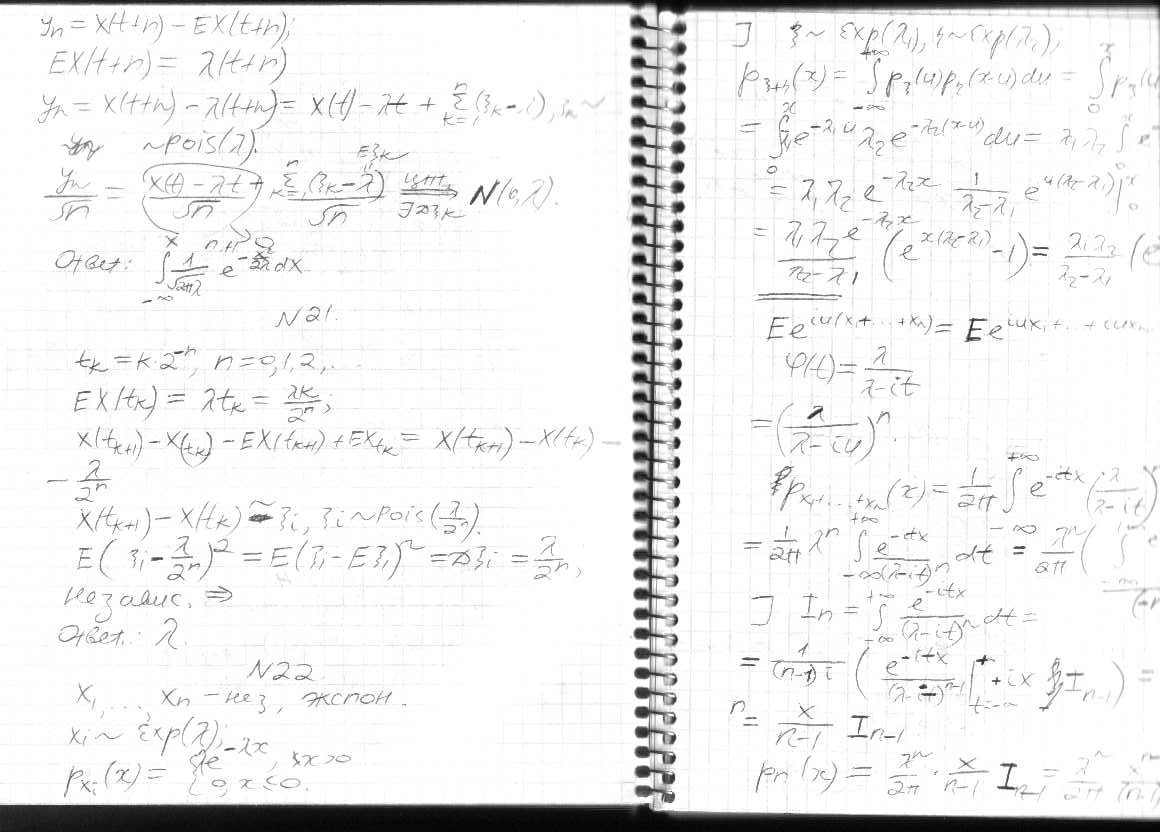 yₙ = X(t+n) − EX(t+n);
EX(t+n) = λ(t+n)
yₙ = X(t+n) − λ(t+n) = X(t) − λt + Σₖ₌₁ⁿ (ξₖ − 1), ξₖ ~
~pois(λ).
Eξₖ
yₙ/√n = (X(t) − λt)/√n + Σₖ₌₁ⁿ (ξₖ − λ)/√n ⟹ N(0, λ).
ЦПТ
∃ Dξₖ
n→∞ 0
Ответ: ∫_{−∞}^{x} 1/√(2πλ) e^{−x²/2λ} dx
N21.
tₖ = k·2⁻ⁿ, n = 0,1,2,...
EX(tₖ) = λtₖ = λk/2ⁿ;
X(tₖ₊₁) − X(tₖ) − EX(tₖ₊₁) + EXtₖ = X(tₖ₊₁) − X(tₖ) −
− λ/2ⁿ
X(tₖ₊₁) − X(tₖ) ~ ξᵢ, ξᵢ ~ pois(λ/2ⁿ).
E(ξᵢ − λ/2ⁿ)² = E(ξᵢ − Eξᵢ)² = Dξᵢ = λ/2ⁿ,
независ. ⇒
Ответ: λ.
N22
X₁, ... Xₙ − нез, экспон.
xᵢ ~ Exp(λ);
p_{xᵢ}(x) = { λe^{−λx}, x>0
0, x ≤ 0.
] ξ ~ Exp(λ₁), η ~ Exp(λ₂);
p_{ξ+η}(x) = ∫_{−∞}^{+∞} p_ξ(u) p_η(x−u) du = ∫₀ˣ p_ξ(u)
= ∫₀ˣ λ₁e^{−λ₁u} λ₂e^{−λ₂(x−u)} du = λ₁λ₂ ∫₀ˣ e⁻
= λ₁λ₂ e^{−λ₂x} 1/(λ₂−λ₁) e^{u(λ₂−λ₁)} |₀ˣ
= λ₁λ₂e^{−λ₂x}/(λ₂−λ₁) (e^{x(λ₂−λ₁)} − 1) = λ₁λ₂/(λ₂−λ₁) (e
Ee^{iu(x₁+...+xₙ)} = Ee^{iux₁+...+iuxₙ}
φ(t) = λ/(λ−it)
= (λ/(λ−iu))ⁿ.
p_{x₁+...+xₙ}(x) = 1/2π ∫_{−∞}^{+∞} e^{−itx} (λ/(λ−it))ⁿ
= 1/2π λⁿ ∫_{−∞}^{+∞} e^{−itx}/(λ−it)ⁿ dt = λⁿ/2π (∫
] Iₙ = ∫_{−∞}^{+∞} e^{−itx}/(λ−it)ⁿ dt =
= 1/((n−1)i) (e^{−itx}/(λ−it)ⁿ⁻¹ |_{t=−∞}^{+} + ix Iₙ₋₁) =
= x/(n−1) Iₙ₋₁
pₙ(x) = λⁿ/2π · x/(n−1) Iₙ₋₁ = λⁿ/2π